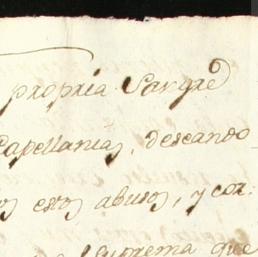 propria Sangre
Capellanias, deseando
os estos abusos, y cor:
Suprema que